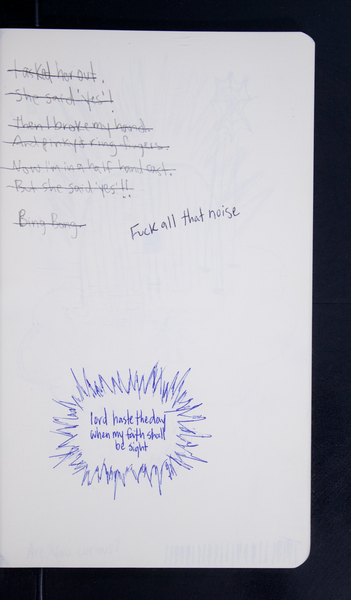 I asked her out.
She said 'yes'!
Then I broke my hand.
And pinky & ring fingers.
Now I'm in a half hand cast.
But she said 'yes'!!
Bing Bang.
Fuck all that noise
lord haste the day
when my faith shall
be sight